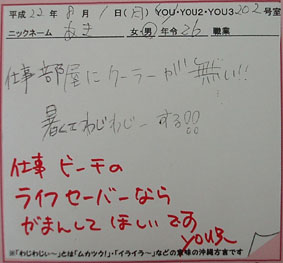 平成22年8月1日(日) YOU・YOU2・YOU3 202号室
ニックネーム あき 女・男 年令26 職業
仕事部屋にクーラーが無い!!
暑くてわじわじーする!!
仕事 ビーチの
ライフセーバーなら
がまんして ほしいです
YOU号
※「わじわじぃ~」とは「ムカつウ!」・「イライラ~」などの意味の沖縄方言です